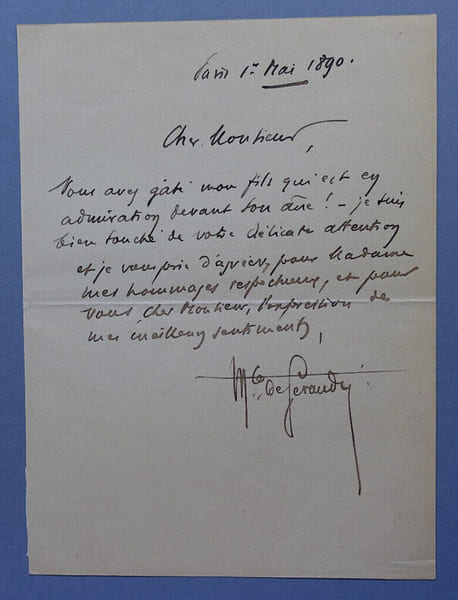 Paris 1er Mai 1890.
Cher Monsieur,
Vous avez gâté mon fils qui est en
admiration devant son âne ! – je suis
bien touché de votre délicate attention
et je vous prie d'agréer, pour Madame
mes hommages respectueux, et pour
vous cher Monsieur, l'expression de
mes meilleurs sentiments,
Mis de